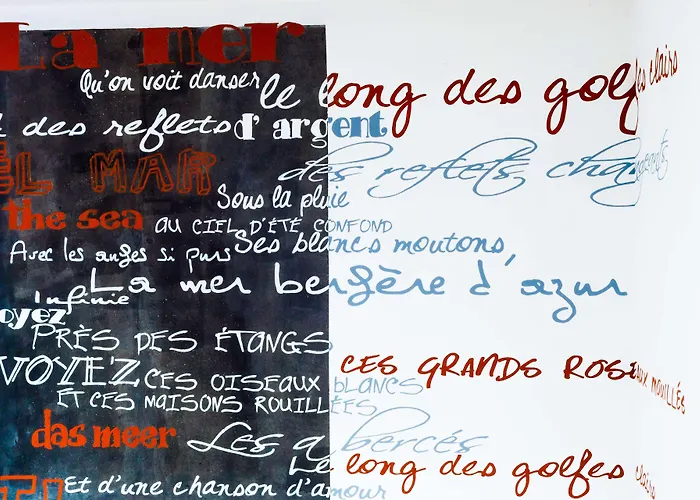 La mer
Qu'on voit danser le long des golfes clairs
des reflets d'argent
EL MAR des reflets changeants
Sous la pluie
the sea AU CIEL D'ÉTÉ CONFOND
Avec les anges si purs Ses blancs moutons,
La mer bergère d'azur
Infinie
oyez
PRÈS DES ÉTANGS
VOYEZ CES GRANDS ROSEAUX MOUILLÉS
CES OISEAUX BLANCS
ET CES MAISONS ROUILLÉES
das meer Les a bercés
Le long des golfes
Et d'une chanson d'amour